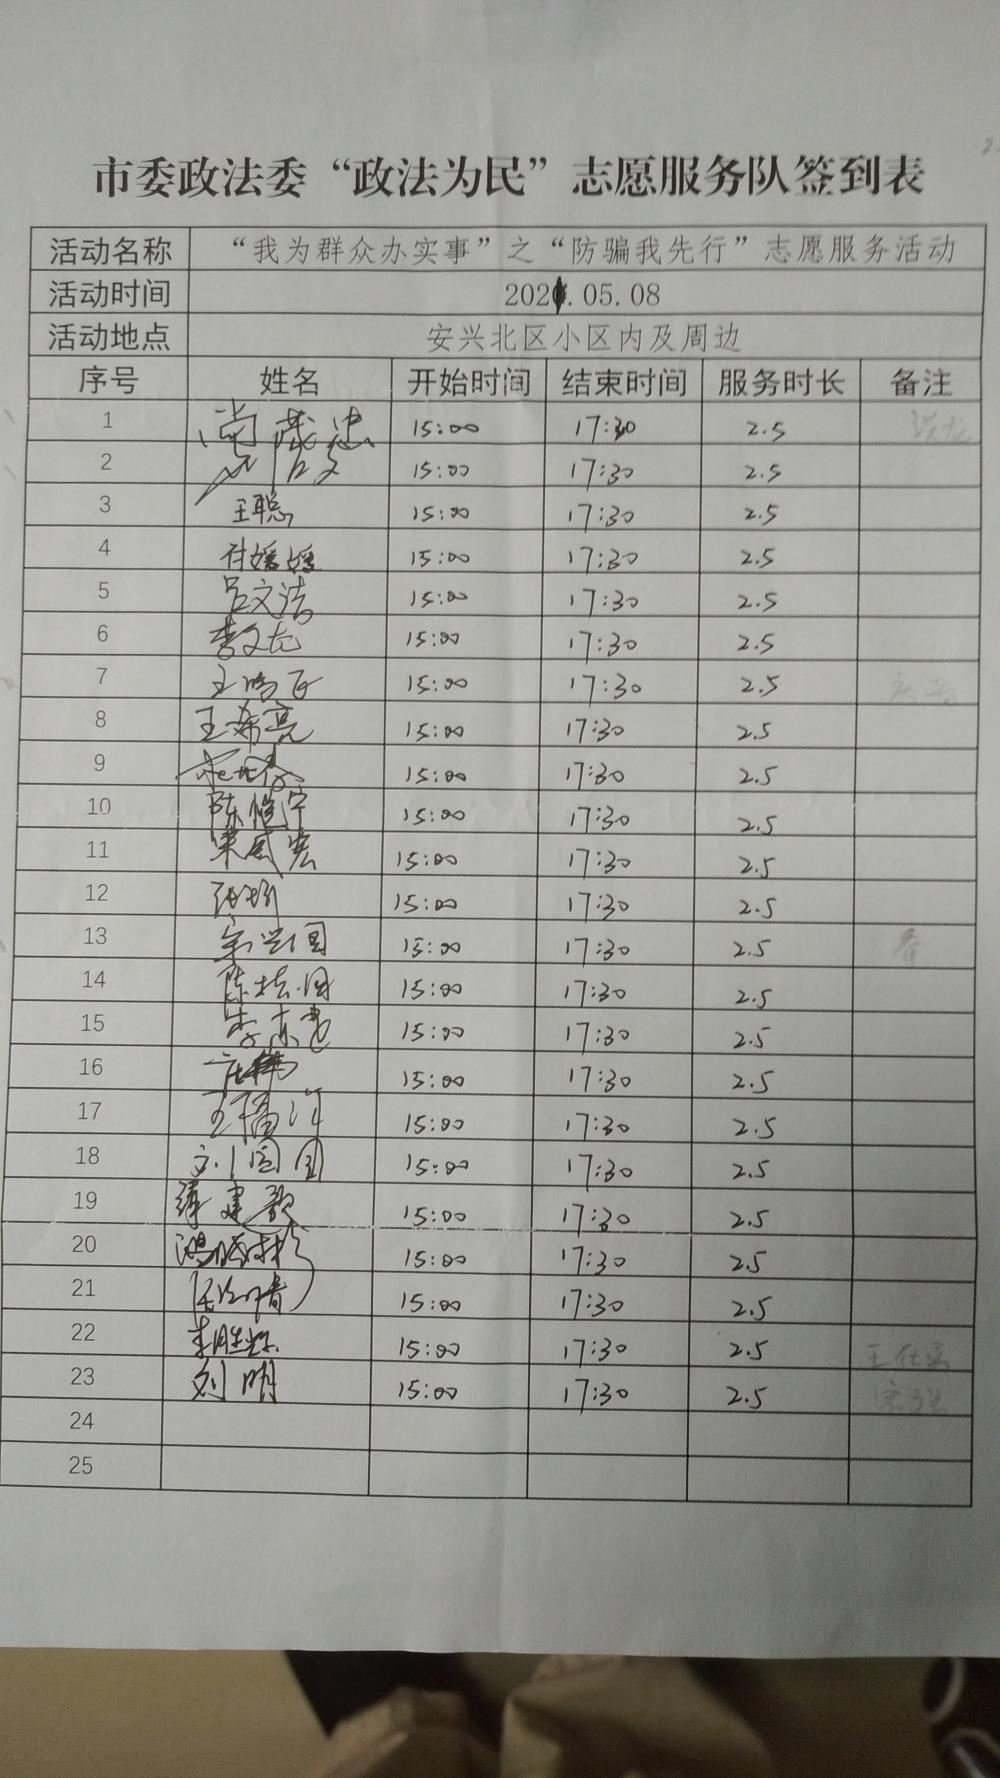 市委政法委“政法为民”志愿服务队签到表
活动名称 “我为群众办实事”之“防骗我先行”志愿服务活动
活动时间 202 .05.08
活动地点 安兴北区小区内及周边
序号 姓名 开始时间 结束时间 服务时长 备注
1 15:00 17:30 2.5
2 15:00 17:30 2.5
3 王聪 15:00 17:30 2.5
4 付媛媛 15:00 17:30 2.5
5 吕文洁 15:00 17:30 2.5
6 李文龙 15:00 17:30 2.5
7 15:00 17:30 2.5
8 王希亮 15:00 17:30 2.5
9 15:00 17:30 2.5
10 15:00 17:30 2.5
11 15:00 17:30 2.5
12 15:00 17:30 2.5
13 宋兴国 15:00 17:30 2.5
14 15:00 17:30 2.5
15 15:00 17:30 2.5
16 15:00 17:30 2.5
17 15:00 17:30 2.5
18 15:00 17:30 2.5
19 15:00 17:30 2.5
20 15:00 17:30 2.5
21 15:00 17:30 2.5
22 李胜 15:00 17:30 2.5
23 刘明 15:00 17:30 2.5
24
25